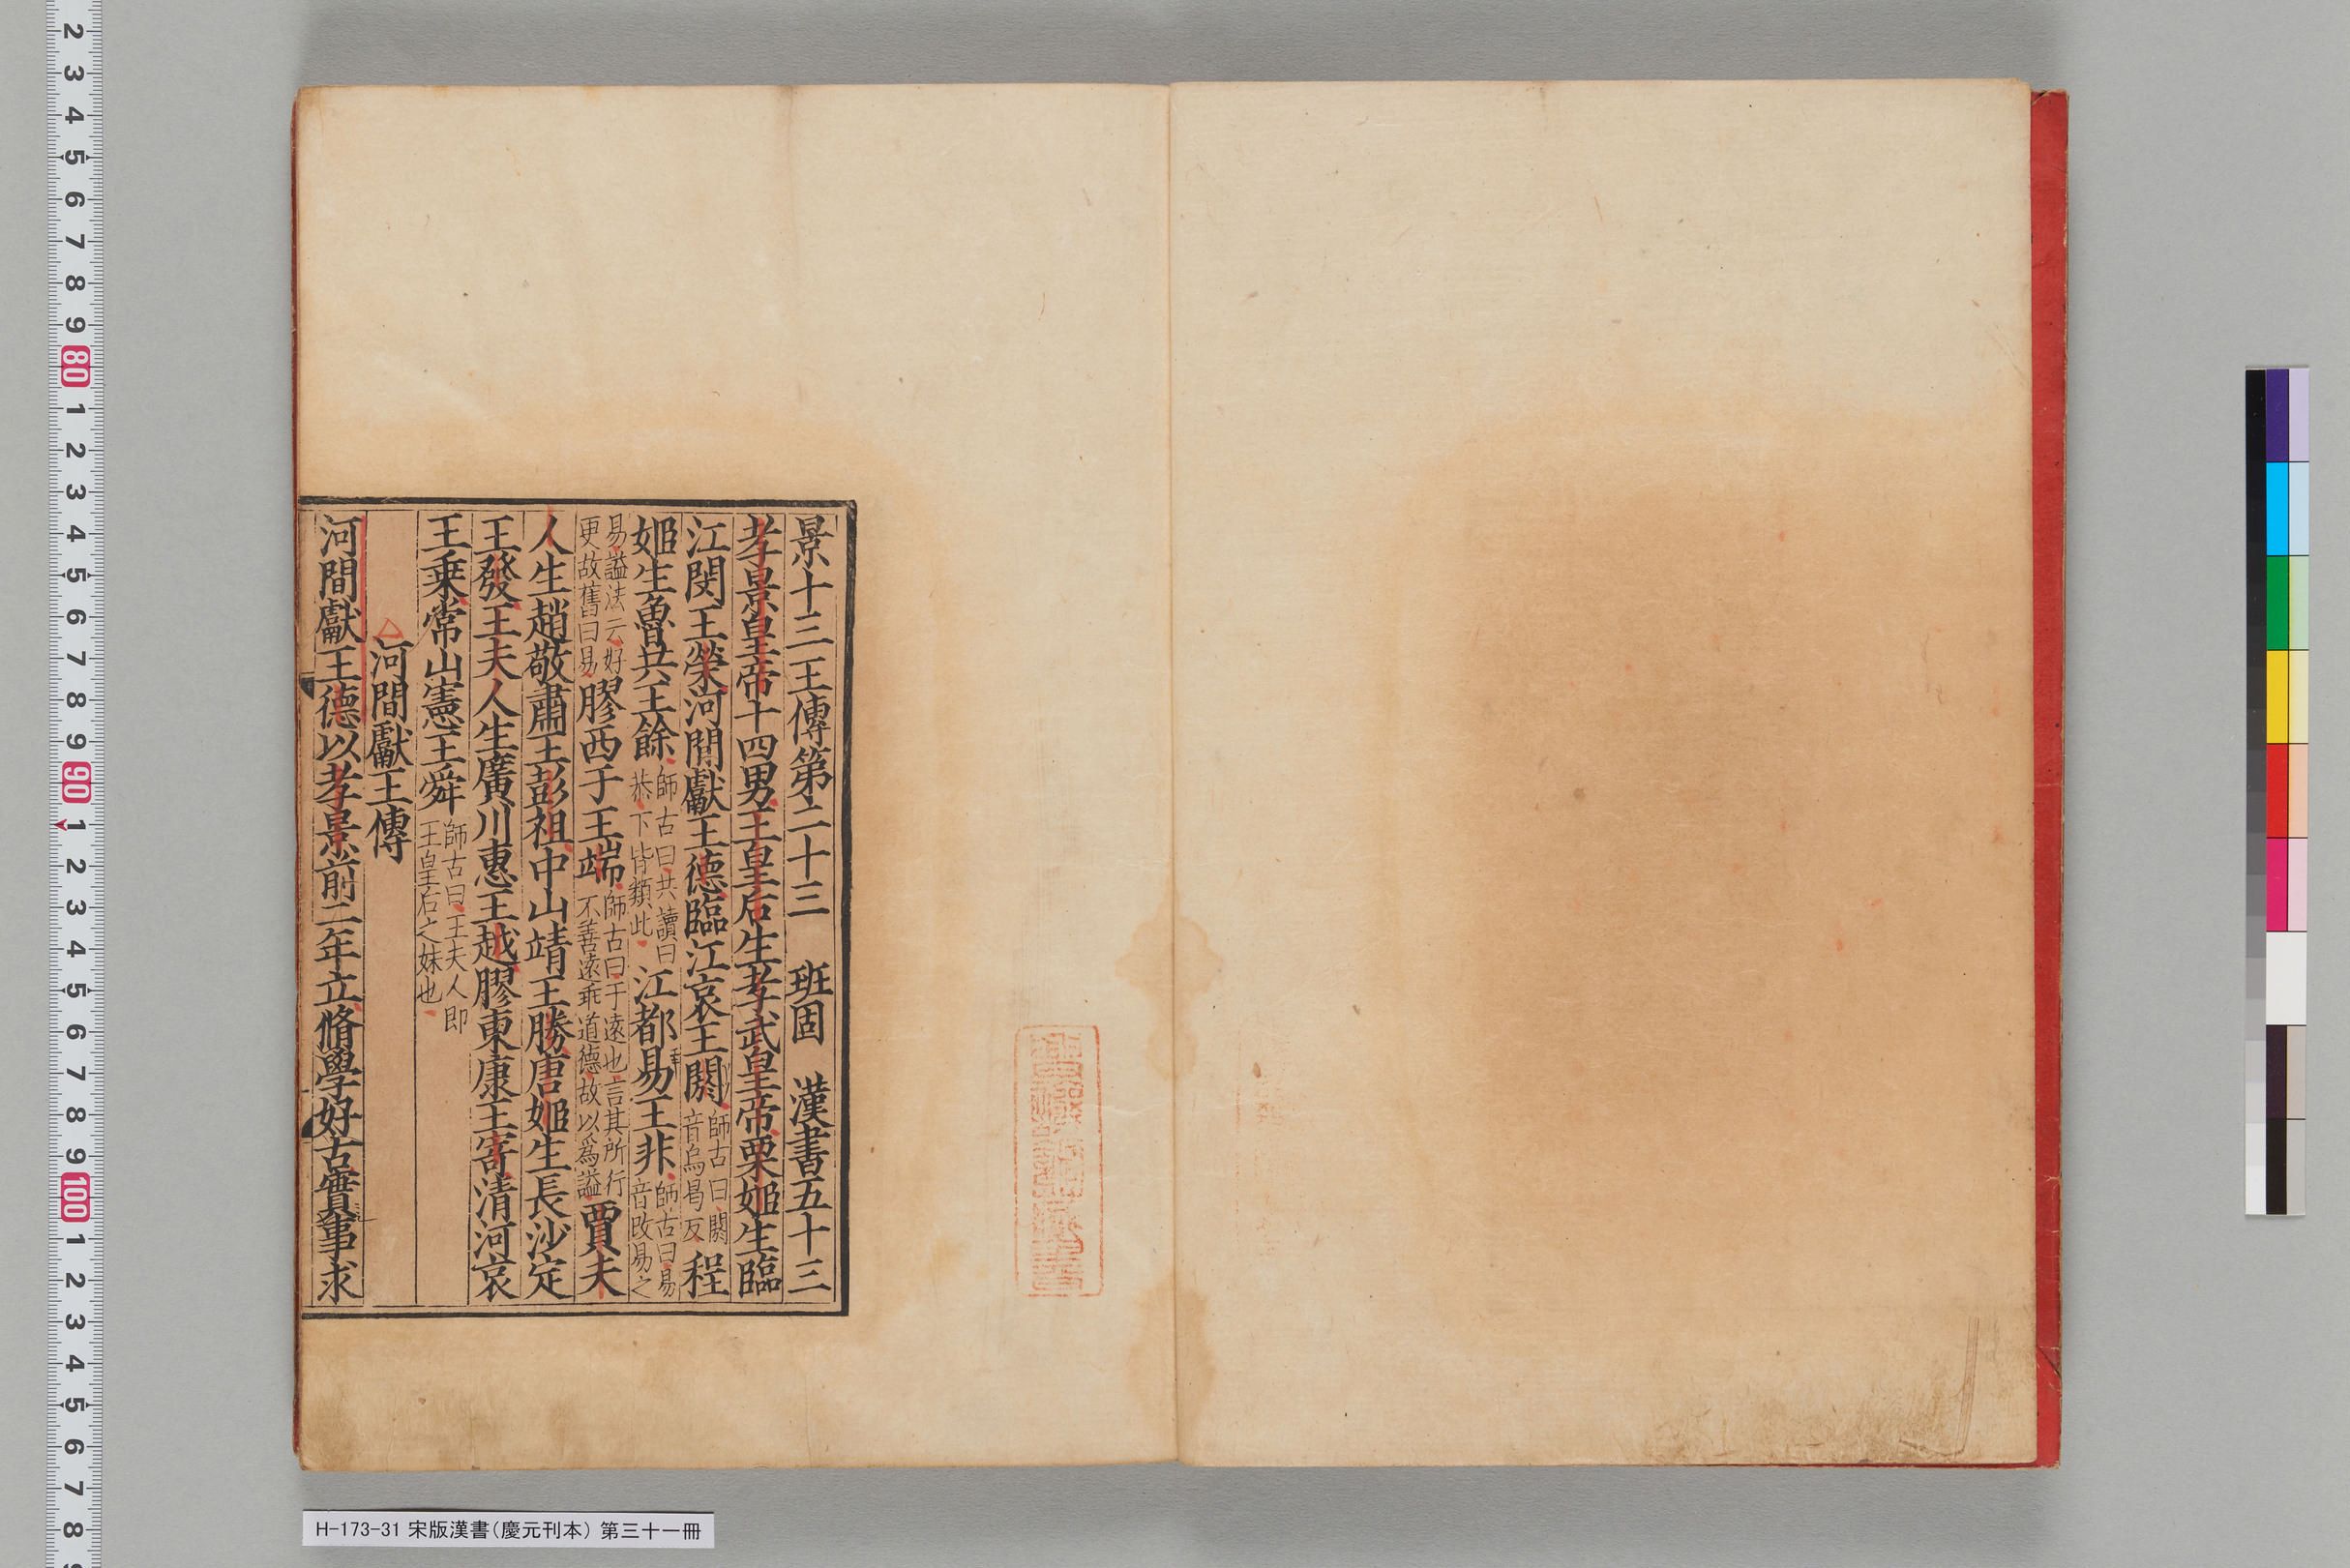 景十三王傳第二十三　班固　漢書五十三
孝景皇帝十四男王皇后生孝武皇帝栗姬生臨
江閔王榮河閒獻王德臨江哀王閼師古曰閼音烏曷反程
姬生魯共王餘師古曰共讀曰恭下皆類此江都易王非師古曰易音改易之
易謚法云好更故舊曰易膠西于王端師古曰于遠也言其所行不善遠乖道德故以爲謚賈夫
人生趙敬肅王彭祖中山靖王勝唐姬生長沙定
王發王夫人生廣川惠王越膠東康王寄清河哀
王乗常山憲王舜師古曰王夫人即王皇后之妹也
河間獻王傳
河間獻王德以孝景前二年立脩學好古實事求
H-173-31 宋版漢書（慶元刊本） 第三十一冊
2 3 4 5 6 7 8 9 80 1 2 3 4 5 6 7 8 9 90 1 2 3 4 5 6 7 8 9 100 1 2 3 4 5 6 7 8